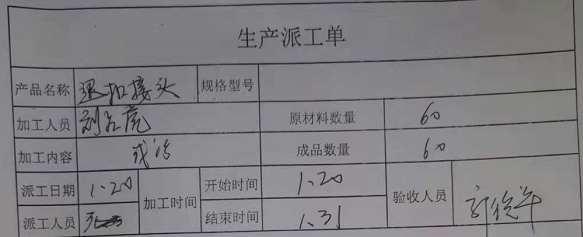 生产派工单
产品名称 退扣接头 规格型号
加工人员 刘 虎 原材料数量 60
加工内容 成品数量 60
派工日期 1.20 加工时间 开始时间 1.20 验收人员
派工人员 结束时间 1.31